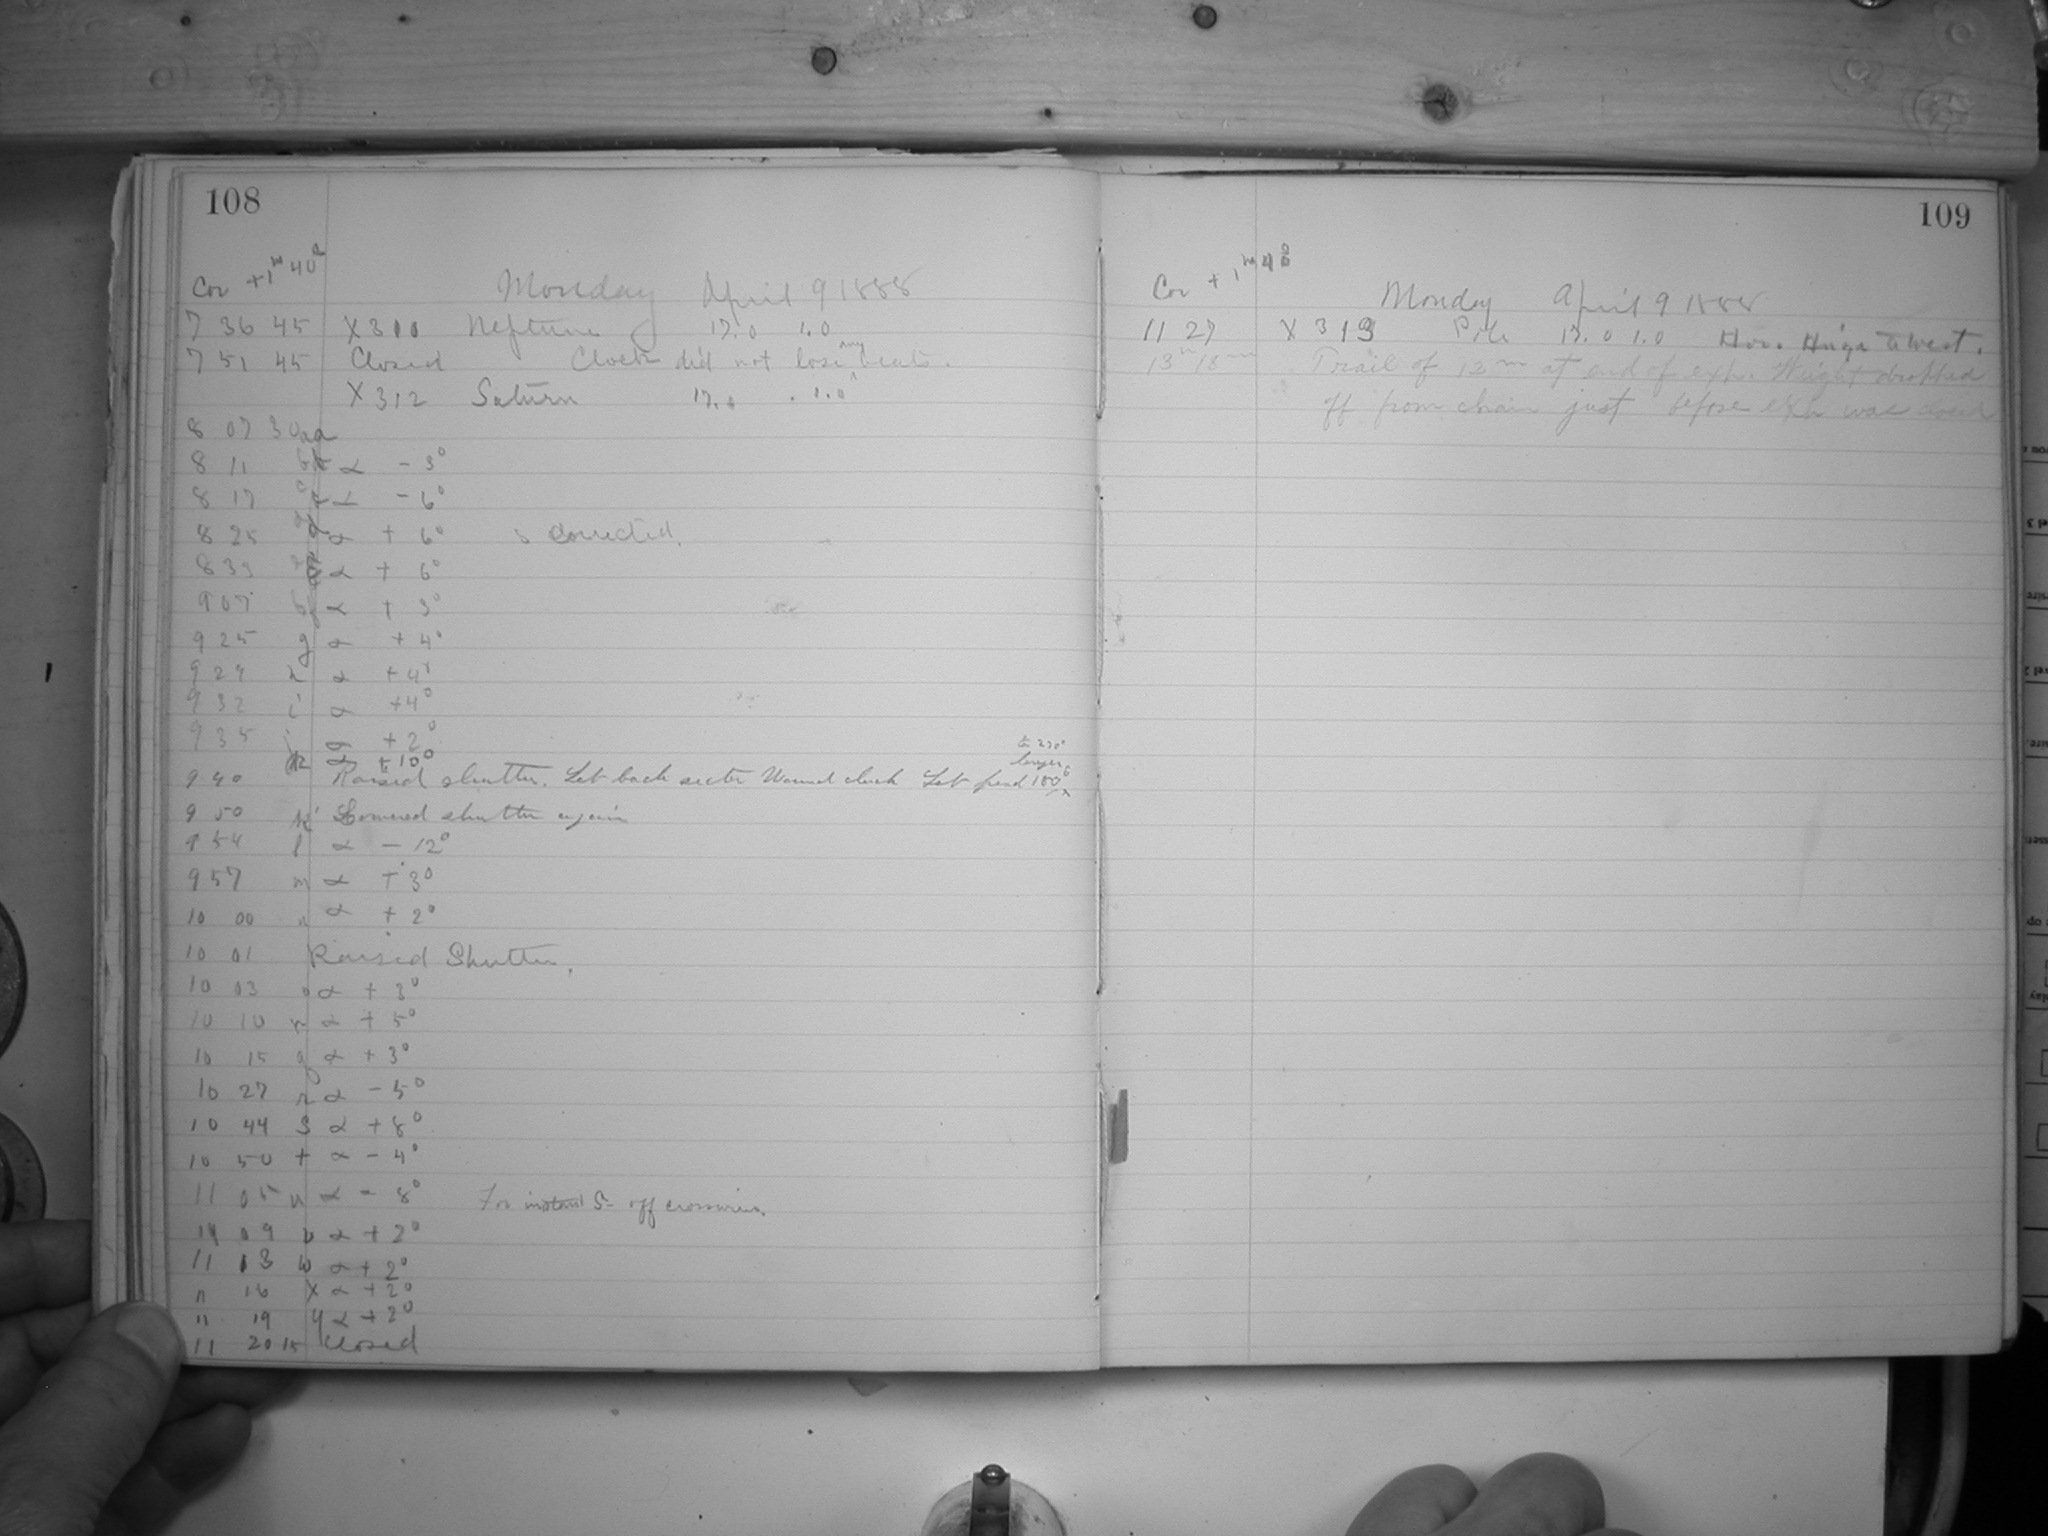 108
Cor +1m 40s
Monday April 9 1888
7 36 45 X310 Neptune 17.0 1.0
7 51 45 Closed Clock did not lose any beats.
X312 Saturn 17.0 1.0
8 07 30 a
8 11 b α - 3°
8 17 c α - 6°
8 25 d α + 6° corrected.
8 33 α + 6°
9 07 α + 3°
9 25 g α + 4°
9 29 h α + 4°
9 32 i α +4°
9 35 j α +2°
k α +10°
to 270°
longer
9 40 Raised shutter. Set back sector Wound clock Set pend 180°
9 50 k' Lowered shutter again
9 54 l α - 12°
9 57 m α + 3°
10 00 n α + 2°
10 01 Raised Shutter.
10 03 o α + 3°
10 10 p α + 5°
10 15 q α + 3°
10 27 r α - 5°
10 44 s α + 8°
10 50 t α - 4°
11 05 u α - 8° For instant 5- off crosswires.
11 09 v α + 2°
11 13 w α + 2°
" 16 x α + 2°
" 19 y α + 2°
11 20 15 Closed
109
Cor + 1m 40s
Monday April 9 1888
11 27 X 313 Pole 17.0 1.0 Hor. Hinge to west.
13h 18m Trail of 12m at end of exp. Weight dropped
off from chain just before exp. was closed